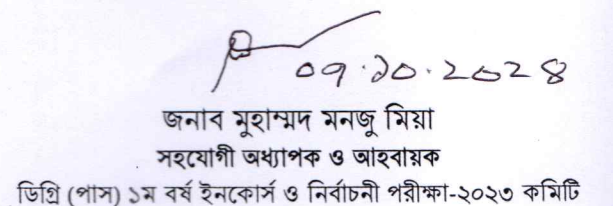 ০৭.১০.২০২৪
জনাব মুহাম্মদ মনজু মিয়া
সহযোগী অধ্যাপক ও আহবায়ক
ডিগ্রি (পাস) ১ম বর্ষ ইনকোর্স ও নির্বাচনী পরীক্ষা-২০২৩ কমিটি